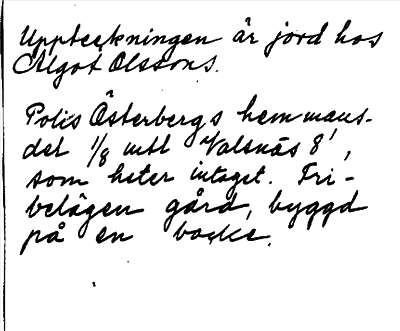 Uppteckningen är jord hos
Algot Olssons.
Polis Österbergs hemmans-
del 1/8 mtl Valsnäs 8',
som heter intaget. Fri-
belägen gård, byggd
på en backe.